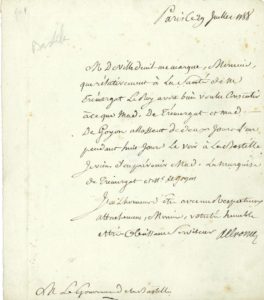 Bastille
Paris Le 29 Juillet 1788
M De Villedeuil me marque, Monsieur,
que relativement à la Santé de M
Trémergat Le Roy avoit bien voulu Consentir
à ce que Mad. De Trémergat et mad.
De Goyon allassent de deux jours l'un
pendant huit Jours Le voir à La Bastille
Je viens d'en prévenir Mad. La Marquise
de Trémergat et Mde de Goyon
J'ai L'honneur d'être avec un respectueux
attachement, Monsieur, votre très humble
et très Obéissant Serviteur
M. Le Gouverneur de la Bastille